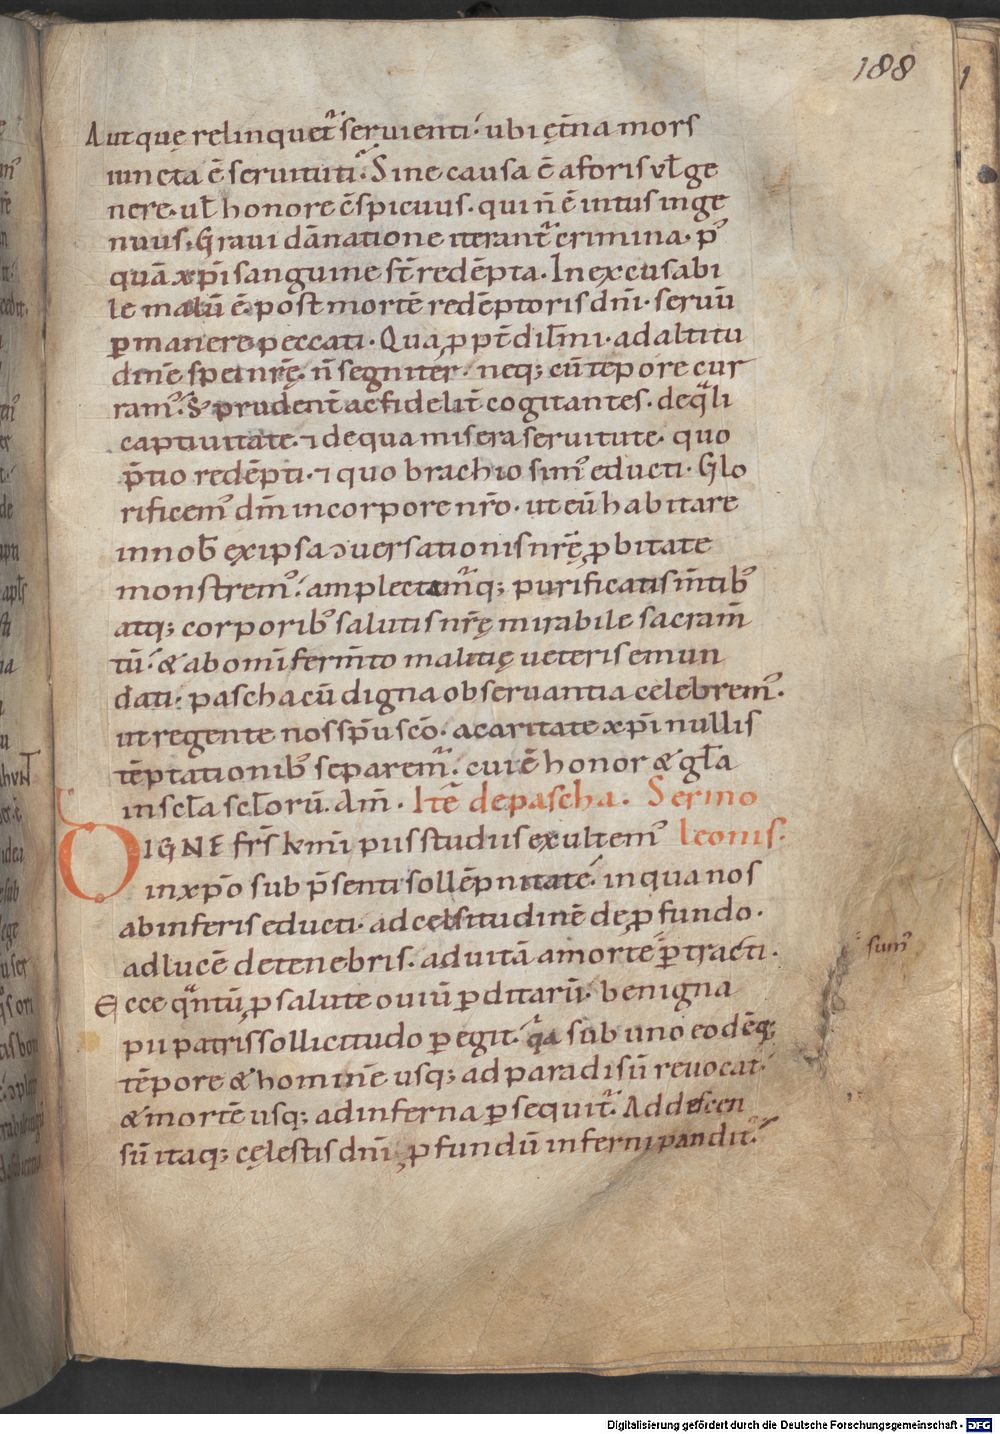 188
Aut quę relinquet᷑ seruienti· ubi ęt̄na mors
iuncta ē seruituti᷑· Sine causa ē aforis vł ge
nere· uł honore c̄spicuus· qui n̄ ē intus inge
nuus· Graui dānatione iterant᷑ crimina· p᷒
quā xp̄i sanguine st̄ redēpta· Inexcusabi
le malū ē· post mortē redēptoris dn̄i· seruū
ꝑmanere peccati· Qua ꝓpt̄ dil̄mi· ad altitu
dinē spei nr̄ę· n̄ segniter· neq; cū tēpore cur
ram᷒· S; prudent̄ ac fidelit̄ cogitantes· de qͣli
captiuitate· ⁊ de qua misera seruitute· quo
p̄tio redēpti· ⁊ quo brachio sim᷒ educti· Glo
rificem᷒ dm̄ in corpore nr̄o· ut eū habitare
in nob̄ ex ipsa ɔuersationis nr̄ę ꝓbitate
monstrem᷒· amplectam᷑q; purificatis m̄tib᷒
atq; corporib᷒ salutis nr̄ę mirabile sacram̄
tū· & ab om̄i ferm̄to malitię ueteris emun
dati· pascha cū digna obseruantia celebrem᷒·
ut regente nos sp̄u sc̄o· a caritate xp̄i nullis
tēptationib᷒ separem᷑· cui ē honor & gl̄a
in scl̄a scl̄orū· Am̄· Itē de pascha· Sermo
DIGNE frs̄ km̄i piis studiis exultem᷒ leonis·
in xp̄o sub p̄senti sollēpnitate· in qua nos
ab inferis educti· ad celsitudinē de ꝓfundo·
ad lucē de tenebris· ad uitā a morte ꝑtracti· sum᷒
Ecce qͣntū ꝓ salute ouiū ꝑditarū· benigna
pii patris sollicitudo ꝑegit· qa sub uno eodēq;
tēpore & hominē usq; ad paradisū reuocat·
& mortē usq; ad inferna ꝑsequit᷑· Ad descen
sū itaq; cęlestis dn̄i ꝓfundū inferni pandit᷑·
Digitalisierung gefördert durch die Deutsche Forschungsgemeinschaft - DFG